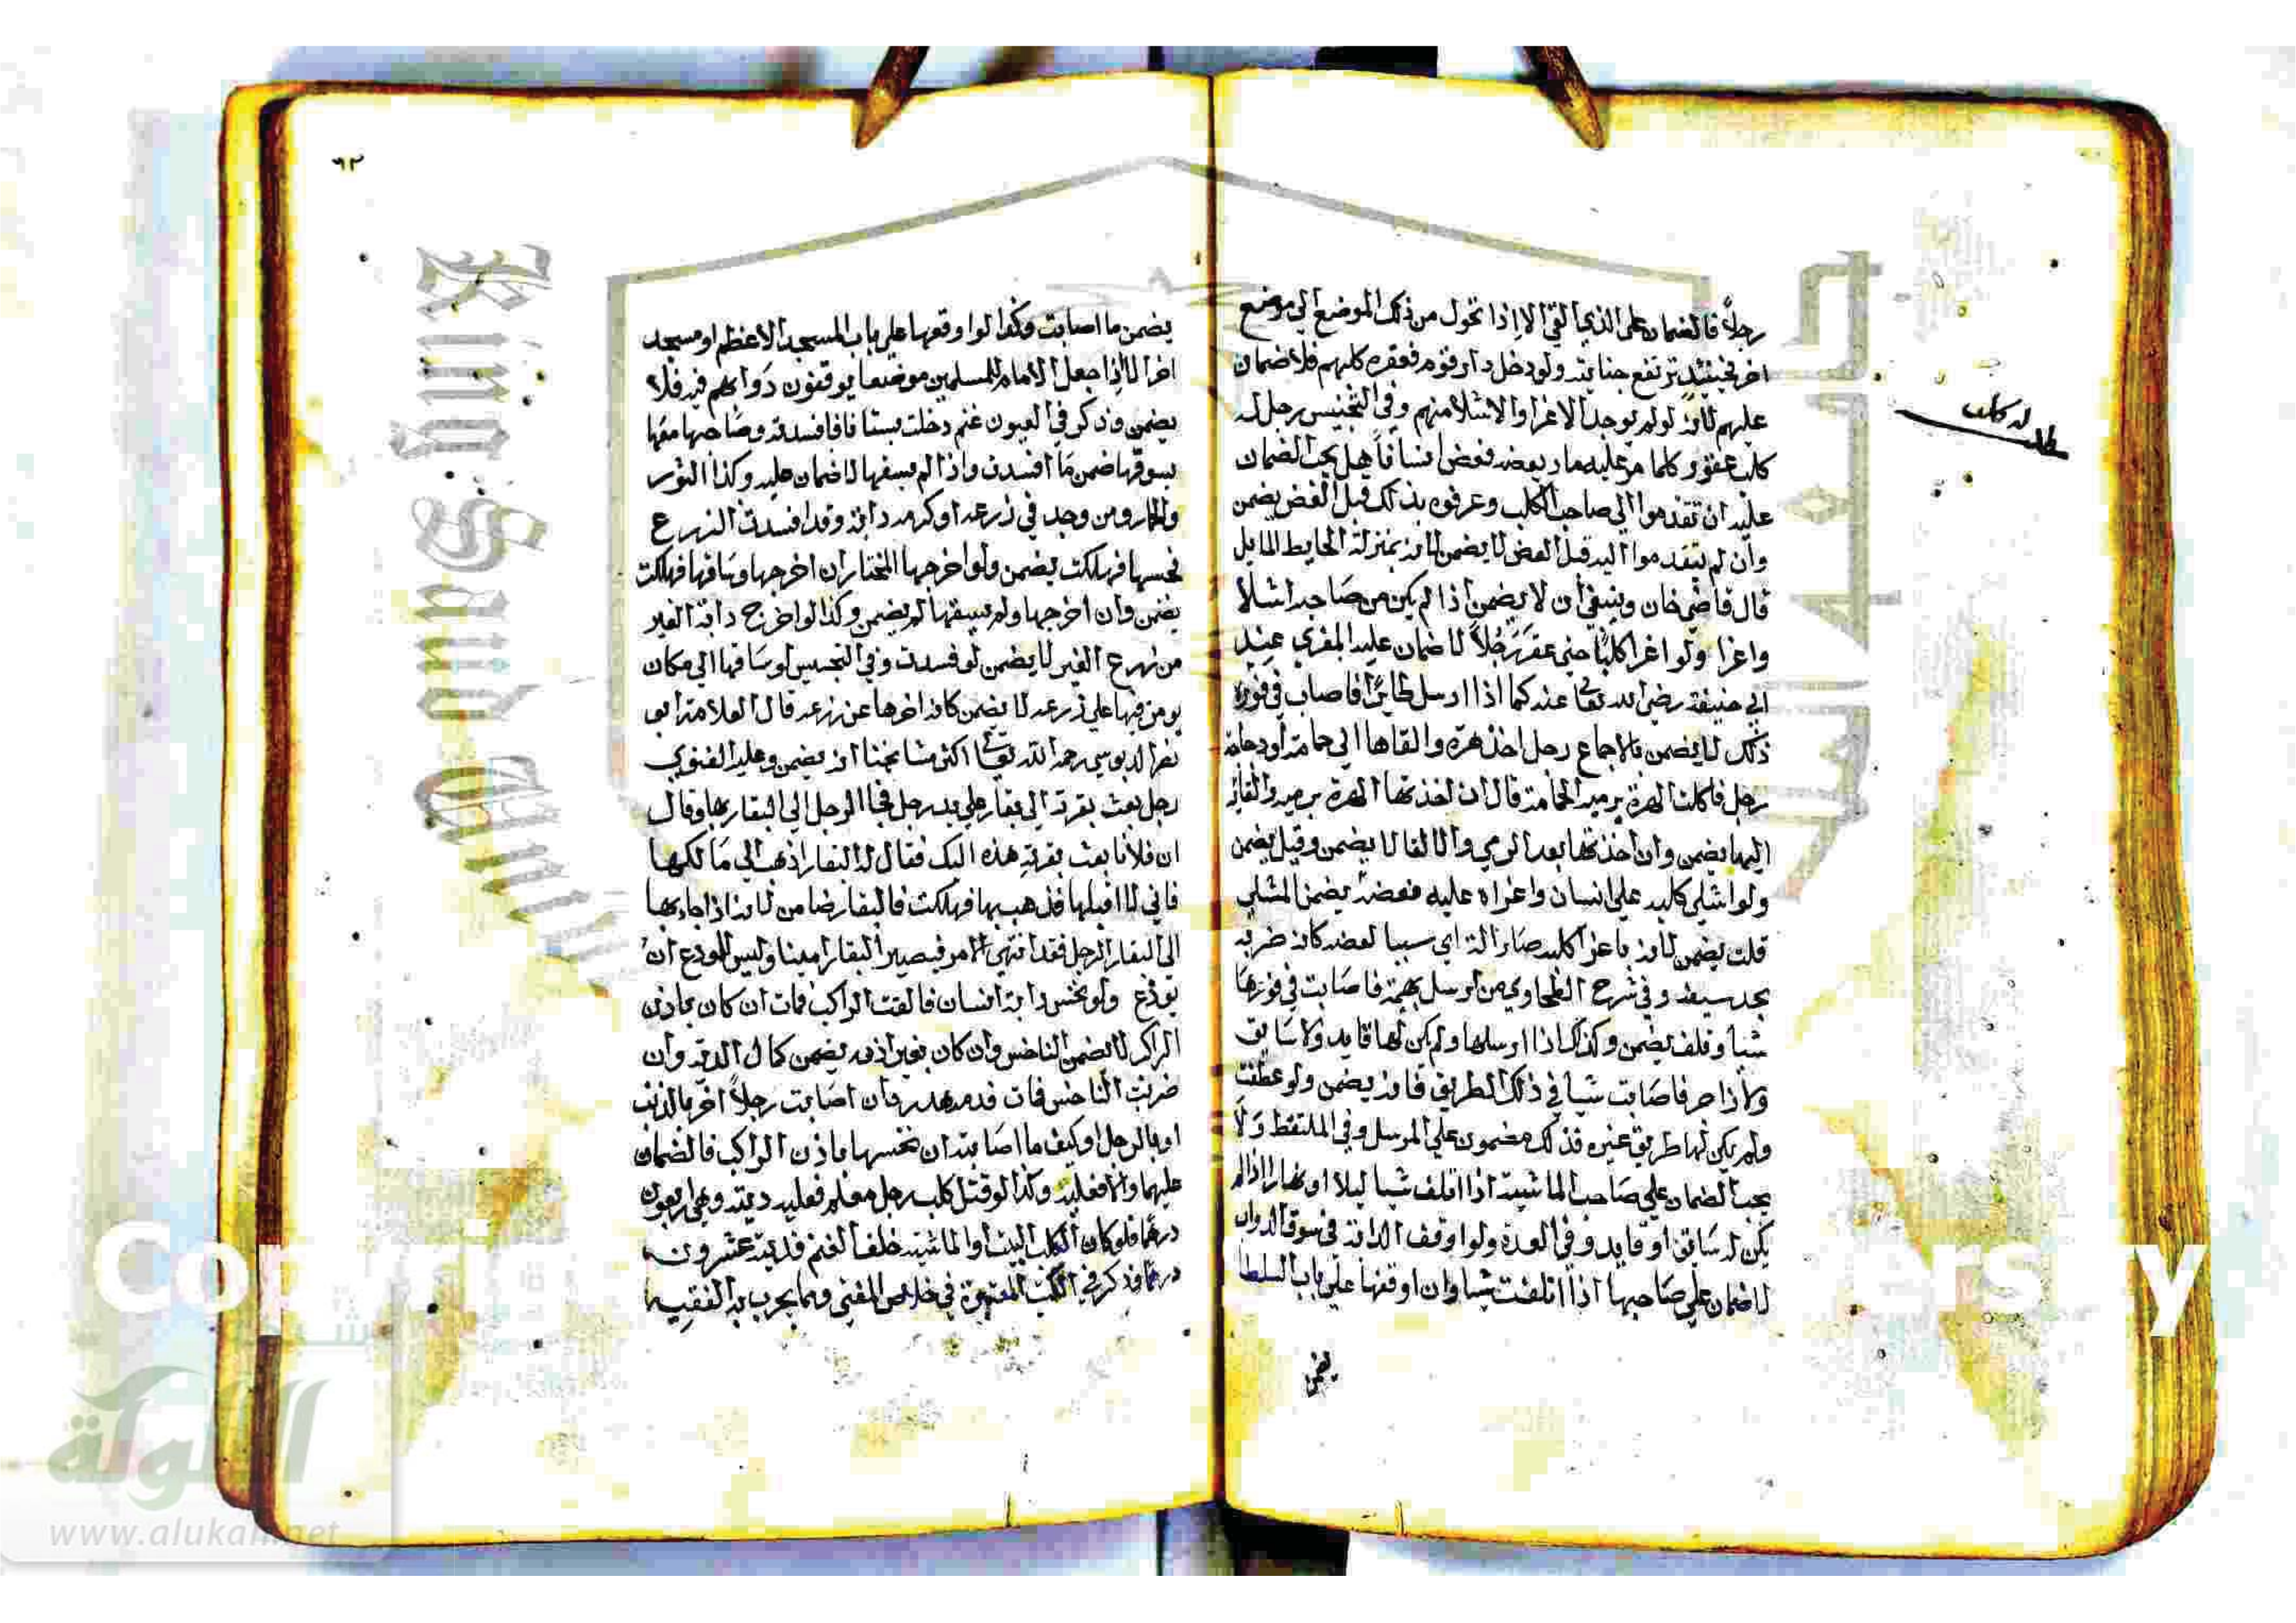 رجلاً فالضمان على الذي القي الا اذا تحول من ذلك الموضع الي موضع
اخر فحينئذٍ ترتفع جنايته ولو دخل دار قوم فعقره كلبهم فلا ضمان
عليهم لانه لم يوجد الاغرا والاشلا منهم وفي التجنيس رجل له
كلب عقور كلما مر عليه مار يعضه فعض انساناً هل يجب الضمان
عليه ان تقدموا الي صاحب الكلب وعرفوه بذلك قبل العض يضمن
وان لم يتقدموا اليه قبل العض لا يضمن لانه بمنزلة الحايط المايل
قال قاضي خان وينبغي ان لا يضمن اذا لم يكن من صاحبه اشلا
واغرا ولو اغرا كلبًا حتى عقر رجُلاً لا ضمان عليه المغري عند
ابي حنيفة رضي الله تعا عنه كما اذا ارسل طايرًا فاصاب في فوره
ذلك لا يضمن بالاجماع رجل اخذ هرة والقاها الي حمامة او دجاجة
رجل فاكلت الهرة برميه الحمامة قال ان اخذتها الهرة برميه والقائه
اليها يضمن وان اخذتها بعد الرمي والالقا لا يضمن وقيل يضمن
ولو اشلي كلبه على انسان واغراه عليه فعضه يضمن المشلي
قلت يضمن لانه باغرا كلبه صار الة اي سببا لعضه كانه ضربه
بحد سيفه وفي شرح الطحاوي من ارسل بهيمة فاصابت في فورها
شيا وتلف يضمن وكذلك اذا ارسلها ولم يكن لها قايد ولا سايق
ولا زاجر فاصابت شيا في ذلك الطريق فانه يضمن ولو عطفت
ولم يكن لها طريق غيره فذلك مضمون على المرسل وفي الملتقط وَلا
يجب الضمان علي صاحب الماشية اذا اتلف شيا ليلا او نهارا اذا لم
يكن له سايق او قايد وفي العدة ولو اوقف الدابة في سوق الدواب
لا ضمان علي صاحبها اذا اتلفت شيا وان اوقفها علي باب السلطا
يضمن
له كلب
٦٢
يضمن ما اصابت وكذا لو اوقعها علي باب المسجد الاعظم او مسجد
اخر الا اذا جعل الامام للمسلمين موضعا يوقفون دَوابهم فيه فلا
يضمن وذكر في العيون غنم دخلت بستانا فافسدته وصَاحبها معَها
يسوقها ضمن مَا افسدت واذا لم يسقها لا ضمان عليه وكذا الثور
والحمار ومن وجد في زرعه او كرمه دابة وقد افسدت الزرع
فحبسها فهلكت يضمن ولو اخرجها المختار ان اخرجها وسَاقها فهلكت
يضمن وان اخرجها ولم يسقها لم يضمن وكذا لو اخرج دابة الغير
من زرع الغير لا يضمن لو فسدت وفي التجنيس لو سَاقها الي مكان
يومن فيها علي زرعه لا يضمن كانه اخرها عن زرعه قال العلامة ابو
نصر الدبوسي رحمه الله تعا اكثر مشايخنا انه يضمن وعليه الفتوي
رجل بعث بقرته الي بقار علي يد رجل فجا الرجل الي البقار بها وقال
ان فلانا بعث بقرته هذه اليك فقال له البقار اذهب الي مَالكها
فاني لا اقبلها فذهب بها فهلكت فالبقار ضامن لانه اذا جا بها
الى البقار الرجل فقد انتهي الامر فيصير البقار امينا وليس للمودع ان
يودع ولو نخس دابة انسان فالقت الراكب فمات ان كان باذن
الراكب لا يضمن الناخس وان كان بغير اذنه يضمن كمال الدية وان
ضربت الناخس فمات فدمه هدر وان اصَابت رجلاً اخر بالذنب
او بالرجل او كيف ما اصَابته ان نخسها باذن الراكب فالضمان
عليهما والا فعليه وكذا لو قتل كلب رجل معلم فعليه ديته وهي اربعون
درهمًا فلو كان الكلب البيت او الماشية خلف الغنم فديته عشرون
درهمًا ذكر في الكتب المعتبرة في خلاص المفتي ومما يجرب به الفقيه
King Saud University
Copyri
ersity
شبكة
الألوكة
www.alukah.net